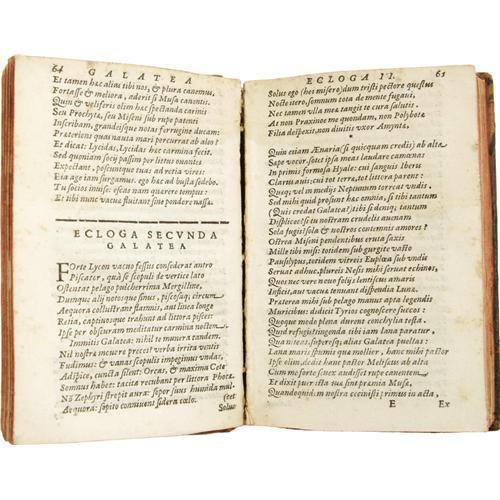 64
GALATEA
Et tamen hæc alias tibi nos, & plura canemus.
Fortasse & meliora, aderit si Musa canentis.
Quin & veliferis olim hæc spectanda carinis
Seu Prochyta, seu Miseni sub rupe patenti
Inscribam, grandeisque notas ferrugine ducam:
Præteriens quas nauta mari percurrat ab alto?
Et dicat; Lycidas, Lycidas hæc carmina fecit.
Sed quoniam socij passim per littus ouantes
Expectant, poscuntque tuas ad retia vires:
Eia age iam surgamus. ego hæc ad busta sedebo.
Tu socios inuise: escas nam quærere tempus:
Et tibi nunc vacuæ fluitant sine pondere nassa.
ECLOGA SECVNDA
GALATEA
FOrte Lycon vacuo fessus consederat antro
Piscator, quà se scopuli de vertice lato
Ostentat pelago pulcherrima Mergilline,
Dumque alij notosque sinus, piscosaq; circum
Aequora collustrant flammis, aut linea longe
Retia, captiuosque trahunt ad littora pisceis
Ipse per obscuram meditatur carmina noctem.
Immitis Galatea: nihil te munera tandem.
Nil nostræ mouere preces? verba irrita ventis
Fudimus: & vanas scopulis impegimus vndas,
Adspice, cuncta silent: Orcas, & maxima Cete
Somnus habet: tacitæ recubant per littora Phocæ
Nõ Zephyri strepit aura: sopor suus humida mul-
(cet
Aequora: sopito conniuent sidera cœlo.
Solus
ECLOGA II.
65
Solus ego (hei misero) dum tristi pectore questus
Nocte itero, somnum tota de mente fugaui,
Nec tamen vlla meæ tangit te cura salutis.
At non Praxinoe me quondam, non Polybotæ
Filia despexit, non diuitis vxor Amynta.
Quin etiam Ænaria (si quicquam credis) ab alta
Sæpe vocor. solet ipsa meas laudare camœnas
In primis formosa Hyale: cui sanguis Iberis
Clarus auis: cui tot terræ, tot littora parent:
Quæq; vel in medijs Neptunum torreat vndis.
Sed mihi quid prosunt hæc omnia, si tibi tantum
(Quis credat Galatea?) tibi si deniq; tantum
Displiceo? si tu nostram crudelis auenam
Sola fugis? sola & nostros contemnis amores?
Ostrea Miseni pendentibus eruta saxis
Mille tibi misi: totidem sub gurgite vasto
Pausilypus, totidem vitreis Euplœa sub vndis
Seruat adhuc. plureis Nesis mihi seruat echinos,
Quos nec vere nouo folijs lentiscus amaris
Inficit, aut vacuæ tenuant dispendia Lunæ.
Præterea mihi sub pelago manus apta legendis
Muricibus: didicit Tyrios cognoscere succos:
Quoque modo plena durent conchylia testa.
Quid refugis? tingenda tibi iam lana paratur,
Qua niteas: superesq; alias Galatea puellas:
Lana maris spumis quæ mollior. hanc mihi pastor
Ipse olim dedit: hanc pastor Melisæus ab alta
Cum me forte senex audisset rupe canentem
Et dixit puer ista tuæ sint præmia Musæ,
Quandoquidem nostra cecinisti primus in acta,
E
Ex